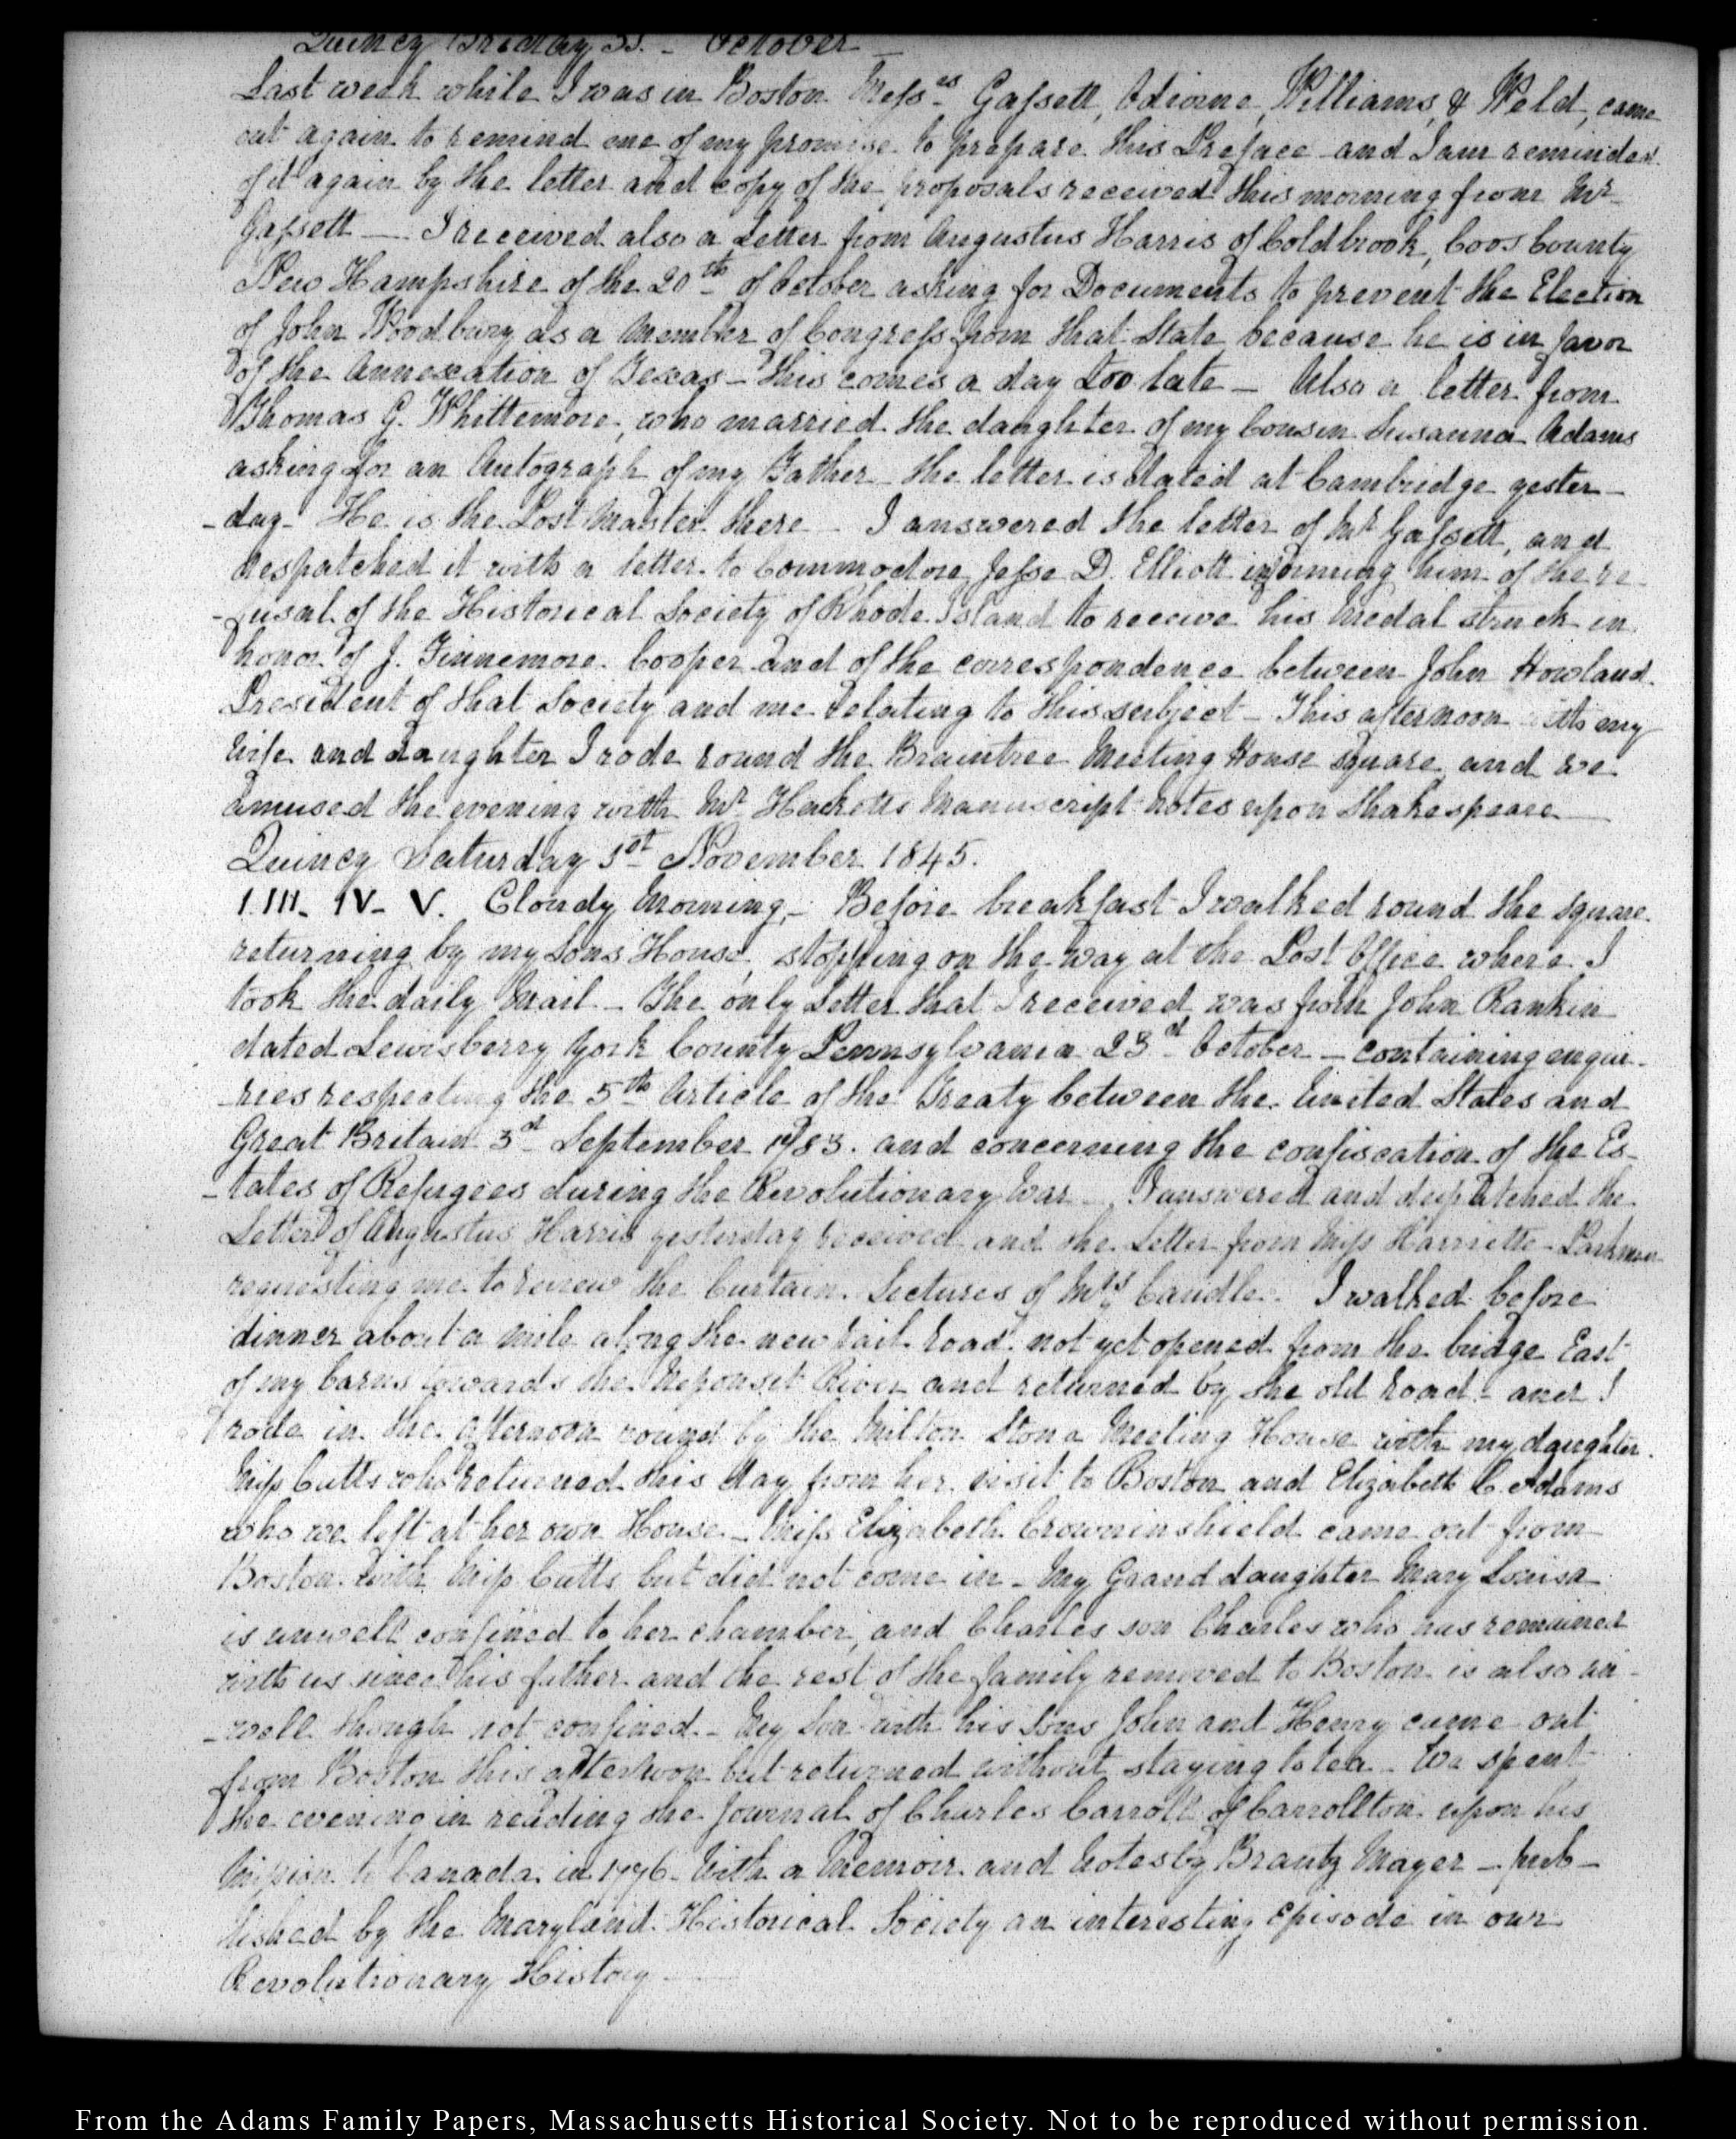 Quincy Friday 31. - October -
Last week while I was in Boston Messrs Gassett, Odiorne, Williams, & Weld, came
out again to remind me of my promise to prepare this Preface and I am reminded
of it again by the letter and copy of the proposals received this morning from Mr
Gassett — I received also a Letter from Augustus Harris of Coldbrook, Coos County
New Hampshire of the 20th of October asking for Documents to prevent the Election
of John Woodbury as a Member of Congress from that State because he is in favor
of the Annexation of Texas — this comes a day too late — Also a letter from
Thomas G. Whittemore, who married the daughter of my Cousin Susanna Adams
asking for an Autograph of my Father - the letter is dated at Cambridge yester-
-day - He is the Post Master there - I answered the letter of Mr Gassett, and
despatched it with a letter to Commodore Jesse D. Elliott informing him of the re-
-fusal of the Historical Society of Rhode Island to receive his Medal struck in
honor of J. Finnemore Cooper and of the correspondence between John Howland
President of that Society and me relating to this subject - This afternoon with my
Wife and daughter I rode round the Braintree Meeting House square, and we
amused the evening with Mr Hacketts Manuscript notes upon Shakespeare —
Quincy Saturday 1st November 1845.
I. III. IV- V. Cloudy Morning,- Before breakfast I walked round the square
returning by my Sons House, stopping on the way at the Post Office where I
took the daily Mail - The only Letter that I received was from John Rankin
dated Lewisberry York County Pennsylvania 23d October — containing enqui-
-ries respecting the 5th Article of the Treaty between the United States and
Great Britain 3d September 1783. and concerning the confiscation of the Es-
-tates of Refugees during the Revolutionary War - I answered and dispatched the
Letter of Augustus Harris yesterday received and the Letter from Miss Harriette Parkman
requesting me to review the Curtain Lectures of Mrs Caudle. I walked before
dinner about a mile along the new rail road not yet opened from the bridge East
of my barns towards the Neponset River and returned by the old road - and I
rode in the afternoon round by the Milton Stone Meeting House with my daughter
Miss Cutts who returned this day from her visit to Boston and Elizabeth C. Adams
who we left at her own House - Miss Elizabeth Crowninshield came out from
Boston with Miss Cutts but did not come in - My Grand daughter Mary Louisa
is unwell confined to her chamber, and Charles son Charles who has remained
with us since his father and the rest of the family removed to Boston is also un-
-well though not confined - My Son with his Sons John and Henry came out
from Boston this afternoon but returned without staying to tea - We spent
the evening in reading the Journal of Charles Carroll of Carrollton upon his
Mission to Canada in 1776 - With a Memoir and Notes by Brantz Mayer — pub-
lished by the Maryland Historical Society an interesting Episode in our
Revolutionary History —
From the Adams Family Papers, Massachusetts Historical Society. Not to be reproduced without permission.